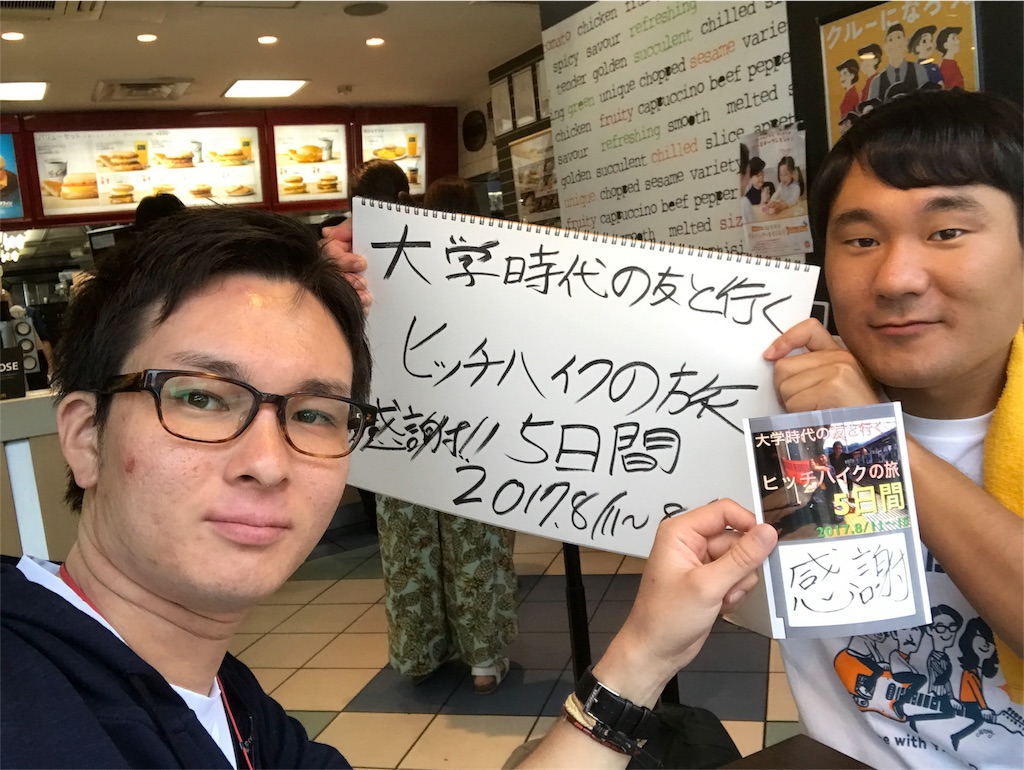 大学時代の友と行く
ヒッチハイクの旅
感謝!! 5日間
2017.8/11~8
大学時代の友と行く
ヒッチハイクの旅
5日間
2017.8/11
感謝
クルーになろう
tomato chicken
spicy savour refreshing
tender golden succulent chilled
green unique chopped sesame varie
chicken fruity cappuccino beef peppe
savour refreshing smooth melted s
golden succulent chilled slice appet
unique chopped sesame variety
fruity cappuccino beef pepper
smooth melted siz
OSE
with